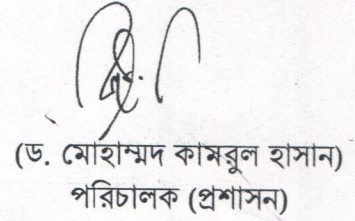 (ড. মোহাম্মদ কামরুল হাসান)
পরিচালক (প্রশাসন)